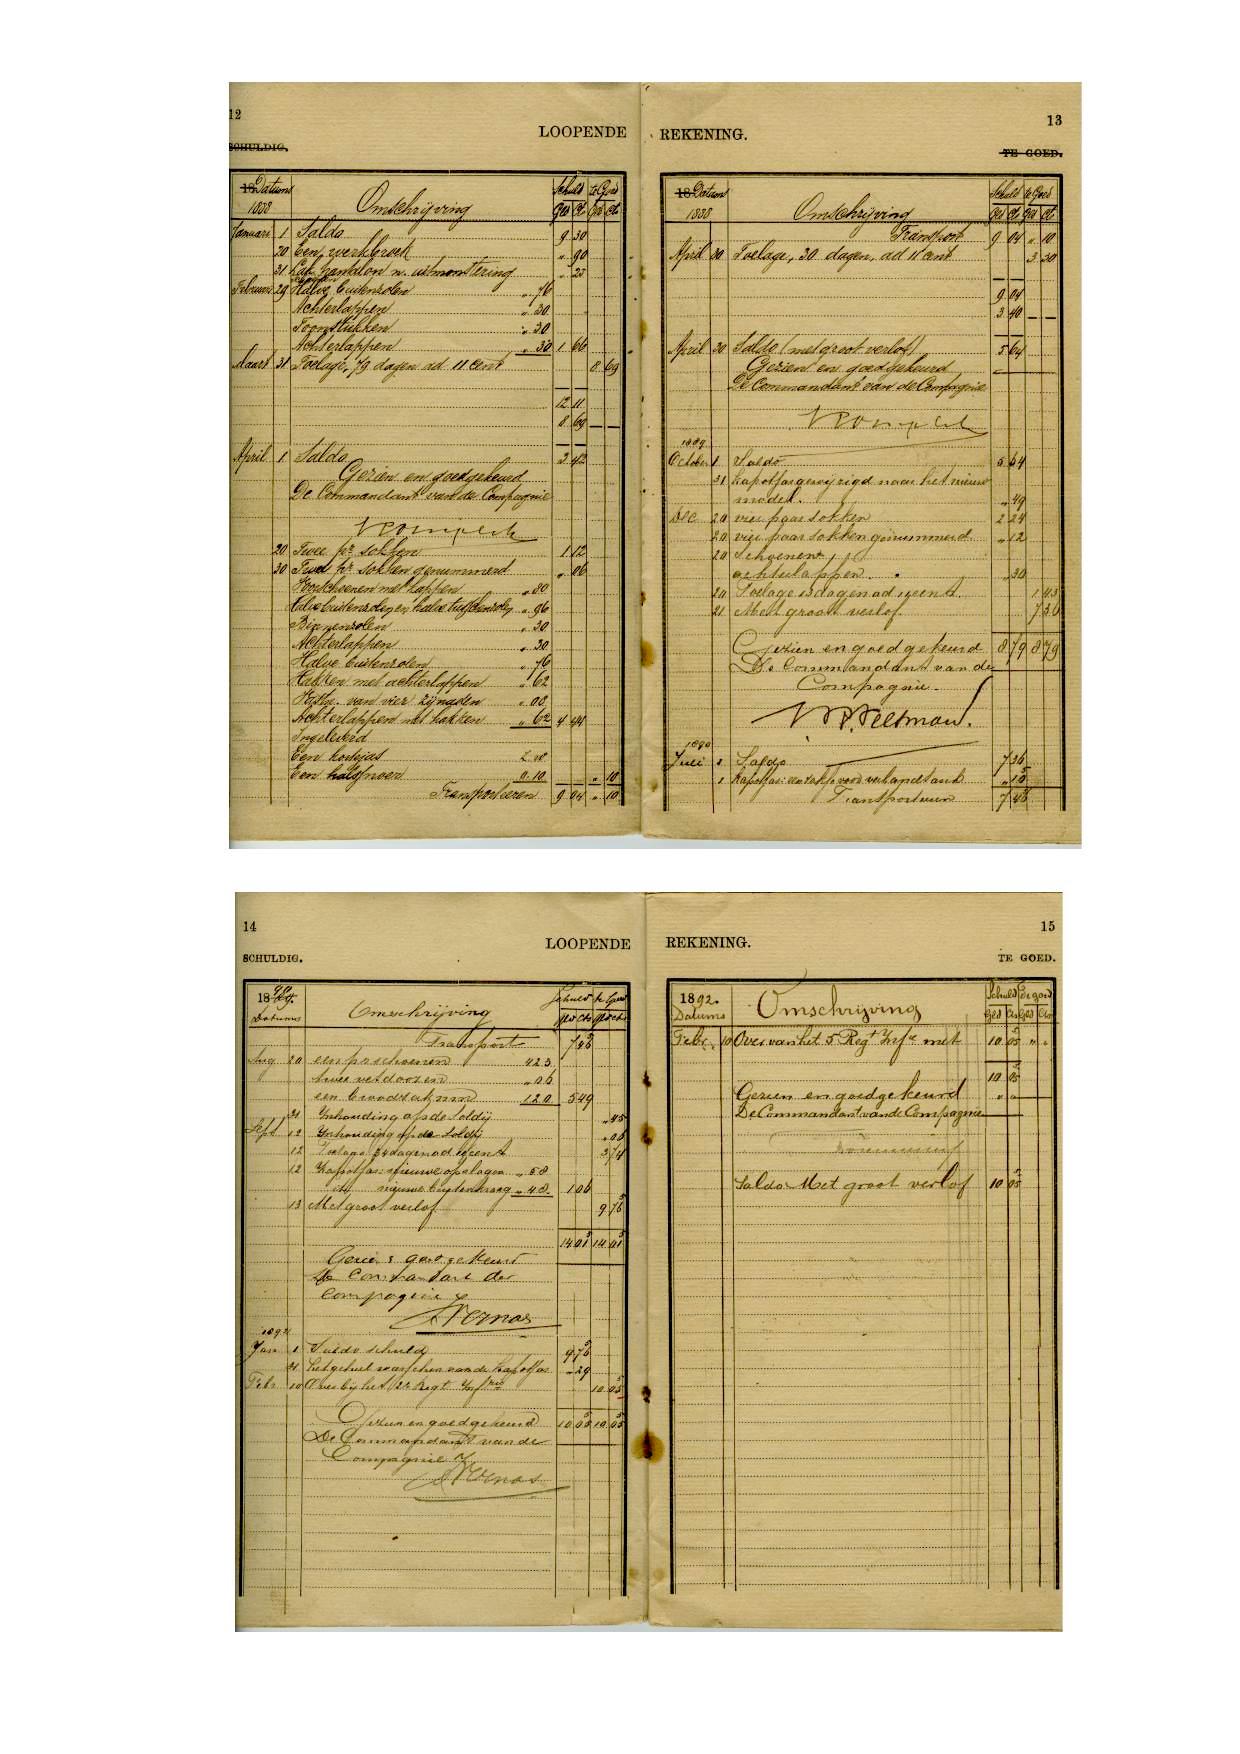 12
LOOPENDE
SCHULDIG.
18 Datums
1888
Omschrijving
Schuld te Goed
Gld Ct Gld Ct
Januari 1 Saldo 9 30
20 Een werkbroek " 90
31 pantalon n. uitmonstering " 25
Februari 29 Halve buitenzolen " 76
Achterlappen " 30
Toonstukken " 30
Achterlappen " 30 1 66
Maart 31 Toelage, 79 dagen ad 11 cent 8 69
12 11
8 69
April 1 Saldo 3 42
Gezien en goedgekeurd
De Commandant van de Compagnie
20 Twee pr sokken 1 12
30 Twee pr sokken genummerd " 06
Voorschoenen met lappen " 80
Halve buitenzolen en halve tusschenzolen " 96
Binnenzolen " 30
Achterlappen " 30
Halve buitenzolen " 76
Hakken met achterlappen " 62
van vier
Achterlappen met hakken " 62 4 44
Ingeleverd
Een
Een 0.10 " 10
Transporteeren 9 04 " 10
REKENING.
13
TE GOED.
18 Datums
1888
Omschrijving
Schuld te Goed
Gld Ct Gld Ct
Transport 9 04 " 10
April 30 Toelage, 30 dagen, ad 11 cent 3 30
9 04
3 40
April 30 Saldo (met groot verlof) 5 64
Gezien en goedgekeurd
De Commandant van de Compagnie
1889
October 1 Saldo 5 64
31 kapotjas gewijzigd naar het nieuw
model. " 49
Dec. 20 vier paar sokken 2 24
20 vier paar sokken genummerd " 12
20 Schoenen
achterlappen. " 30
20 Toelage 13 dagen ad 11 cent. 1 43
21 Met groot verlof. 7 36
Gezien en goedgekeurd 8 79 8 79
De Commandant van de
Compagnie.
1890
Juli 1 Saldo 7 36
Transporteeren 7 46
14
LOOPENDE
SCHULDIG.
18
Datums
Omschrijving
Schuld te Goed
Gld Cts Gld Cts
Transport 7 46
Aug. 20 een pr schoenen 4 23
twee vetdoozen " 06
een broodzak 1 20 5 49
31 Inhouding op de Soldij " 45
Sept 12 Inhouding op de Soldij " 06
12 Toelage 34 dagen ad 11 cent 3 74
12 Kapotjas: nieuwe opslagen " 58
nieuwe " 48 1 06
13 Met groot verlof 9 76
14 01 14 01
Gezien & goedgekeurd
De Commandant der
Compagnie
Jan 1 Saldo schuld 9 76
" 29
Febr. 10 Over bij het 2e Regt Infrie 10 05
Gezien en goedgekeurd 10 05 10 05
De Commandant van de
Compagnie
REKENING.
15
TE GOED.
1892.
Datums
Omschrijving
Schuld Te goed
Gld Cts Gld Cts
Febr. 10 Over van het 5 Regt Infie met 10 05 " "
10 05
Gezien en goedgekeurd " "
De Commandant van de Compagnie
Saldo Met groot verlof 10 05